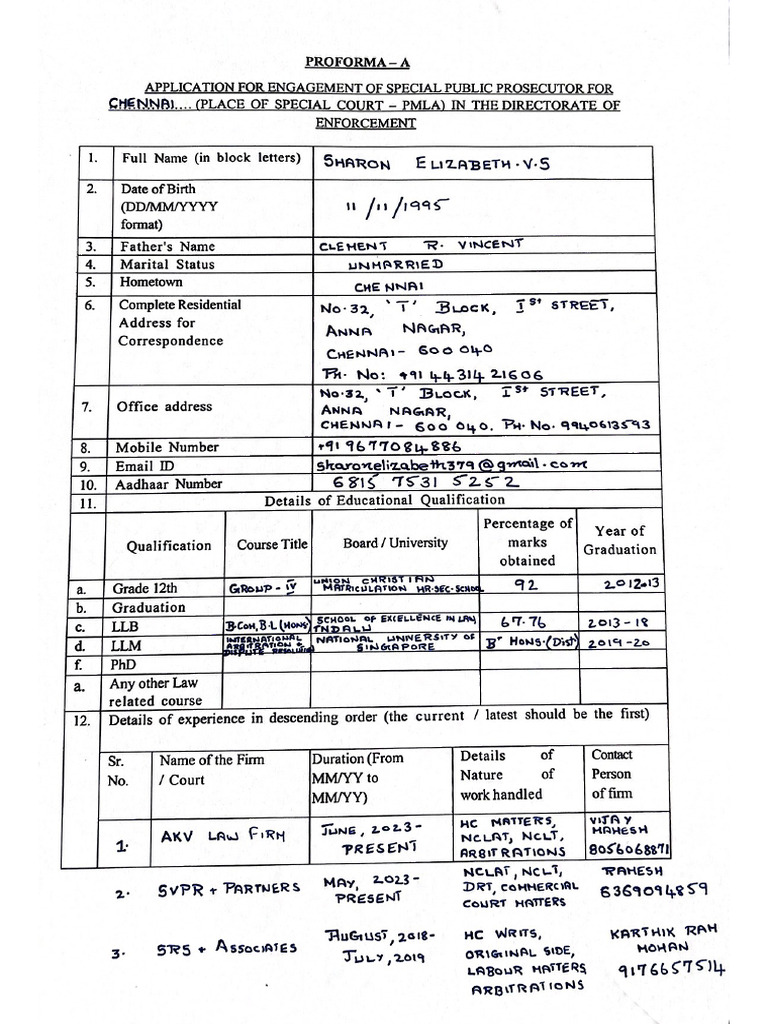 PROFORMA – A
APPLICATION FOR ENGAGEMENT OF SPECIAL PUBLIC PROSECUTOR FOR
CHENNAI.... (PLACE OF SPECIAL COURT – PMLA) IN THE DIRECTORATE OF
ENFORCEMENT
1. Full Name (in block letters) SHARON ELIZABETH.V.S
2. Date of Birth
(DD/MM/YYYY 11/11/1995
format)
3. Father's Name CLEMENT R. VINCENT
4. Marital Status UNMARRIED
5. Hometown CHENNAI
6. Complete Residential No.32, 'T' BLOCK, Ist STREET,
Address for ANNA NAGAR,
Correspondence CHENNAI- 600 040
Ph. No: +91 44314 21606
7. Office address No.32, 'T' BLOCK, Ist STREET,
ANNA NAGAR,
CHENNAI- 600 040. Ph. No. 9940613593
8. Mobile Number +91 9677084886
9. Email ID sharonelizabeth379@gmail.com
10. Aadhaar Number 6815 7531 5252
11. Details of Educational Qualification
Qualification Course Title Board / University Percentage of marks obtained Year of Graduation
a. Grade 12th GROUP-IV UNION CHRISTIAN MATRICULATION HR.SEC.SCHOOL 92 2012-13
b. Graduation
c. LLB B.COM, B.L (HONS) SCHOOL OF EXCELLENCE IN LAW, TNDALU 67.76 2013-18
d. LLM INTERNATIONAL ARBITRATION + DISPUTE RESOLUTION NATIONAL UNIVERSITY OF SINGAPORE B+ HONS.(Dist) 2019-20
f. PhD
a. Any other Law
related course
12. Details of experience in descending order (the current / latest should be the first)
Sr. No. Name of the Firm / Court Duration (From MM/YY to MM/YY) Details of Nature of work handled Contact Person of firm
1. AKV LAW FIRM JUNE, 2023- PRESENT HC MATTERS, NCLAT, NCLT, ARBITRATIONS VIJAY MAHESH 8056068871
2. SVPR + PARTNERS MAY, 2023- PRESENT NCLAT, NCLT, DRT, COMMERCIAL COURT MATTERS RAMESH 6369094859
3. SRS + ASSOCIATES AUGUST, 2018- JULY, 2019 HC WRITS, ORIGINAL SIDE, LABOUR MATTERS, ARBITRATIONS KARTHIK RAM MOHAN 9176657514